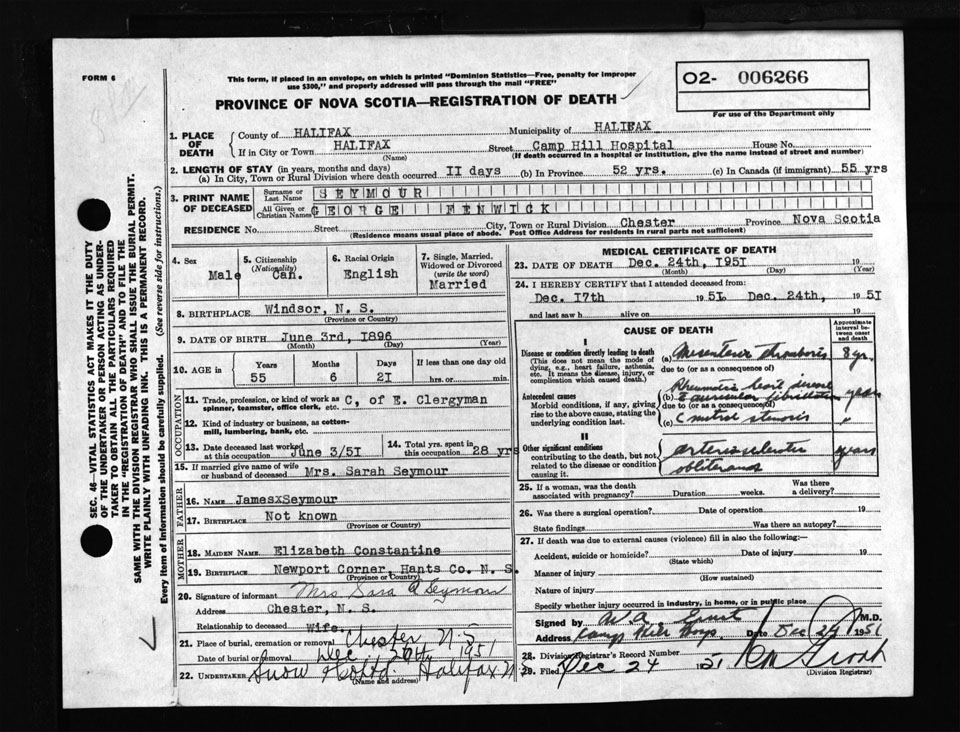 FORM 6
This form, if placed in an envelope, on which is printed "Dominion Statistics—Free, penalty for improper
use $300," and properly addressed will pass through the mail "FREE"
O2- 006266
For use of the Department only
PROVINCE OF NOVA SCOTIA—REGISTRATION OF DEATH
1. PLACE OF DEATH
County of HALIFAX Municipality of HALIFAX
If in City or Town HALIFAX Street Camp Hill Hospital House No.
(Name) (If death occurred in a hospital or institution, give the name instead of street and number)
2. LENGTH OF STAY (in years, months and days)
(a) In City, Town or Rural Division where death occurred II days (b) In Province 52 yrs. (c) In Canada (if immigrant) 55 yrs
3. PRINT NAME OF DECEASED
Surname or Last Name SEYMOUR
All Given or Christian Names GEORGE FENWICK
RESIDENCE No. Street City, Town or Rural Division Chester Province Nova Scotia
(Residence means usual place of abode. Post Office Address for residents in rural parts not sufficient)
4. Sex Male
5. Citizenship (Nationality) Can.
6. Racial Origin English
7. Single, Married, Widowed or Divorced (write the word) Married
8. BIRTHPLACE Windsor, N. S.
(Province or Country)
9. DATE OF BIRTH June 3rd, I896
(Month) (Day) (Year)
10. AGE in Years Months Days If less than one day old
55 6 2I hrs. or min.
OCCUPATION
11. Trade, profession, or kind of work as spinner, teamster, office clerk, etc. C, of E. Clergyman
12. Kind of industry or business, as cotton-mill, lumbering, bank, etc.
13. Date deceased last worked at this occupation June 3/5I
14. Total yrs. spent in this occupation 28 yrs
15. If married give name of wife or husband of deceased Mrs. Sarah Seymour
FATHER
16. NAME JamesxSeymour
17. BIRTHPLACE Not known
(Province or Country)
MOTHER
18. MAIDEN NAME Elizabeth Constantine
19. BIRTHPLACE Newport Corner, Hants Co. N. S.
(Province or Country)
20. Signature of informant Mrs Sara A Seymour
Address Chester, N. S.
Relationship to deceased Wife.
21. Place of burial, cremation or removal Chester N.S
Date of burial or removal Dec 26th 1951
22. UNDERTAKER Snow & Co Ltd Halifax N.S
(Name and address)
MEDICAL CERTIFICATE OF DEATH
23. DATE OF DEATH Dec. 24th, I95I 19
(Month) (Day) (Year)
24. I HEREBY CERTIFY that I attended deceased from:
Dec. I7th 195I, Dec. 24th, 195I
and last saw h alive on 19
CAUSE OF DEATH
Approximate interval between onset and death
I
Disease or condition directly leading to death
(This does not mean the mode of dying, e.g., heart failure, asthenia, etc. It means the disease, injury, or complication which caused death.)
(a) Mesenteric thrombosis 8 yr.
due to (or as a consequence of)
Antecedent causes
Morbid conditions, if any, giving rise to the above cause, stating the underlying condition last.
(b) Rheumatic heart disease
& auricular fibrillation years
due to (or as a consequence of)
(c) mitral stenosis "
II
Other significant conditions
contributing to the death, but not related to the disease or condition causing it.
arteriosclerotic years
obliterans
25. If a woman, was the death associated with pregnancy? Duration weeks. Was there a delivery?
26. Was there a surgical operation? Date of operation 19
State findings Was there an autopsy?
27. If death was due to external causes (violence) fill in also the following:—
Accident, suicide or homicide? Date of injury 19
(State which)
Manner of injury
(How sustained)
Nature of injury
Specify whether injury occurred in industry, in home, or in public place
Signed by W A Ernst M.D.
Address Camp Hill Hosp. Date Dec 24 1951
28. Division Registrar's Record Number
29. Filed Dec 24 1951
(Division Registrar)
SEC. 46—VITAL STATISTICS ACT MAKES IT THE DUTY
OF THE UNDERTAKER OR PERSON ACTING AS UNDER-
TAKER TO OBTAIN ALL THE PARTICULARS REQUIRED
IN THE "REGISTRATION OF DEATH" AND TO FILE THE
SAME WITH THE DIVISION REGISTRAR WHO SHALL ISSUE THE BURIAL PERMIT.
WRITE PLAINLY WITH UNFADING INK. THIS IS A PERMANENT RECORD.
Every item of information should be carefully supplied. (See reverse side for instructions.)